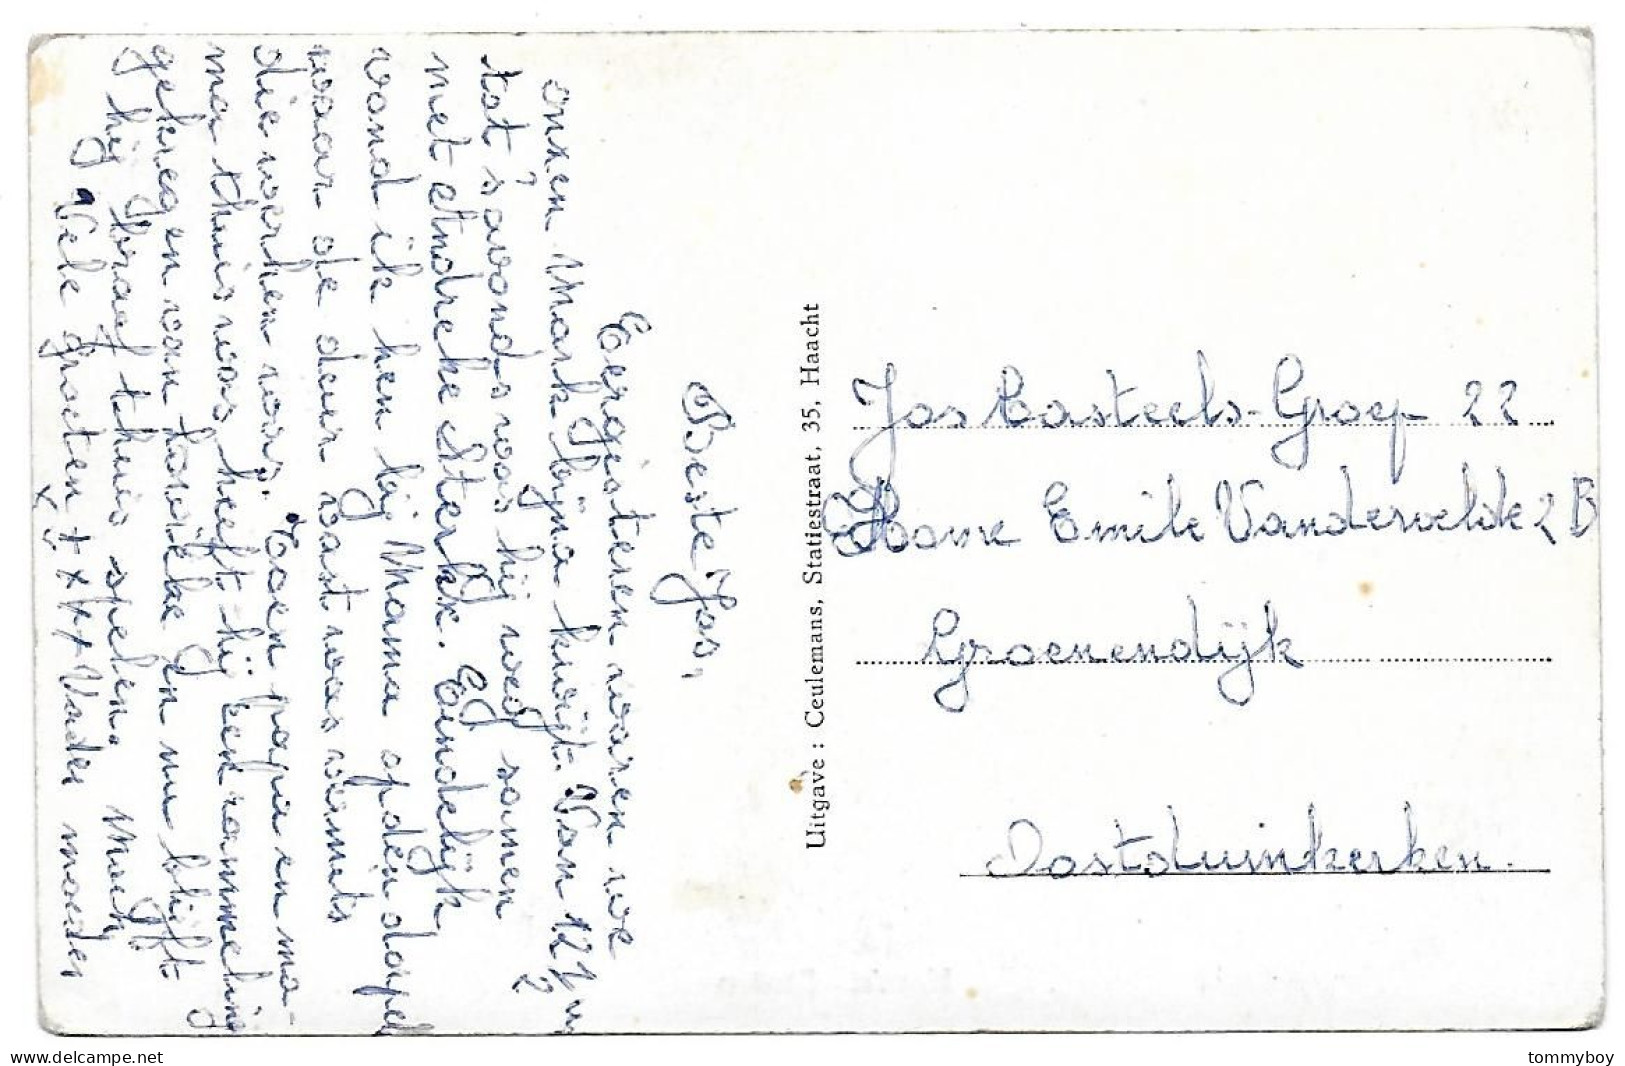 Beste Jos,
Eergisteren waren we
onzen Mark bijna kwijt. Van 12 1/2 u
tot 's avonds was hij weg samen
met Andreke Sterkx. Eindelijk
vond ik hen bij Mama op den dorpel
waar de deur vast was vermits
die werken was. Toen papa en ma-
ma thuis was heeft hij een rammeling
gekregen van tonieke En nu blijft
hij braaf thuis spelen. Mark
Vele groeten + x x x Vader moeder
x
Uitgave : Ceulemans, Statiestraat, 35, Haacht
Jos Casteels - Groep 22
Home Emile Vandervelde 2 B
Groenendijk
Oostduinkerken.
tommyboy
www.delcampe.net